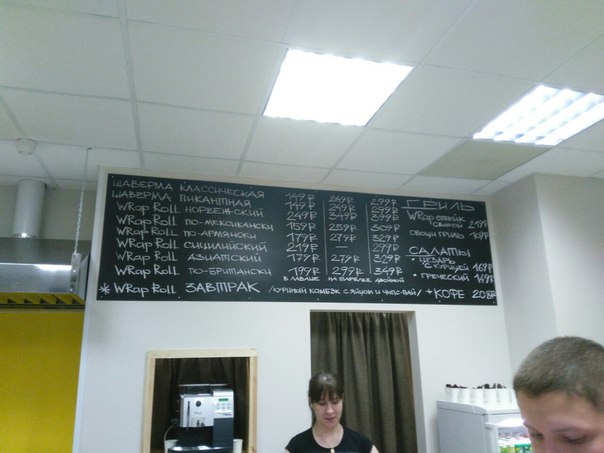 ШАВЕРМА КЛАССИЧЕСКАЯ 149₽ 249₽ 299₽
ШАВЕРМА ПИКАНТНАЯ 149₽ 249₽ 299₽
WRap Roll НОРВЕЖСКИЙ 249₽ 349₽ 399₽
WRap Roll ПО-МЕКСИКАНСКИ 159₽ 259₽ 309₽
WRap Roll ПО-АРМЯНСКИ 179₽ 279₽ 329₽
WRap Roll СИЦИЛИЙСКИЙ 219₽ — 297₽
WRap Roll АЗИАТСКИЙ 179₽ 279₽ 329₽
WRap Roll ПО-БРИТАНСКИ 199₽ 299₽ 349₽
В ЛАВАШЕ НА ТАРЕЛКЕ ДВОЙНОЙ
* WRap Roll ЗАВТРАК /КУРИНЫЙ КОМБЭК С ЯЙЦОМ И ЧИПС-ПАЙ/ + КОФЕ 208₽
ГРИЛЬ
WRap СТЕЙК
СВИНОЙ 219₽
ОВОЩИ ГРИЛЬ 169₽
САЛАТЫ
• ЦЕЗАРЬ
С КУРИЦЕЙ 169₽
• ГРЕЧЕСКИЙ 149₽